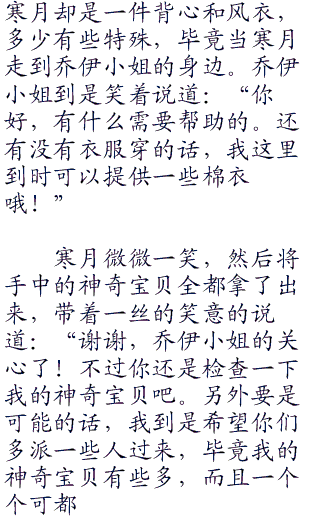 寒月却是一件背心和风衣，
多少有些特殊，毕竟当寒月
走到乔伊小姐的身边。乔伊
小姐到是笑着说道：“你
好，有什么需要帮助的。还
有没有衣服穿的话，我这里
到时可以提供一些棉衣
哦！”
寒月微微一笑，然后将
手中的神奇宝贝全都拿了出
来，带着一丝的笑意的说
道：“谢谢，乔伊小姐的关
心了！不过你还是检查一下
我的神奇宝贝吧。另外要是
可能的话，我到是希望你们
多派一些人过来，毕竟我的
神奇宝贝有些多，而且一个
个可都